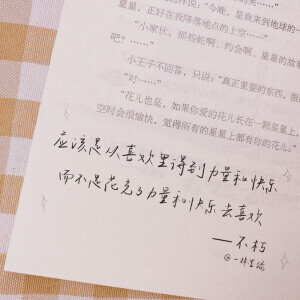 想说："今晚，是我来到地球的一
星星，正好在我降落地点的上空……"
"小家伙，那些蛇啊、约会啊、星星的故事
吧？……"
小王子不回答，只说："真正重要的东西，眼
"对……"
"花儿也是，如果你爱的花儿长在一颗星星上，
空时会很愉快，觉得所有的星星上都有你的花儿。"
应该是从喜欢里得到力量和快乐
而不是花光了力量和快乐去喜欢
——不朽